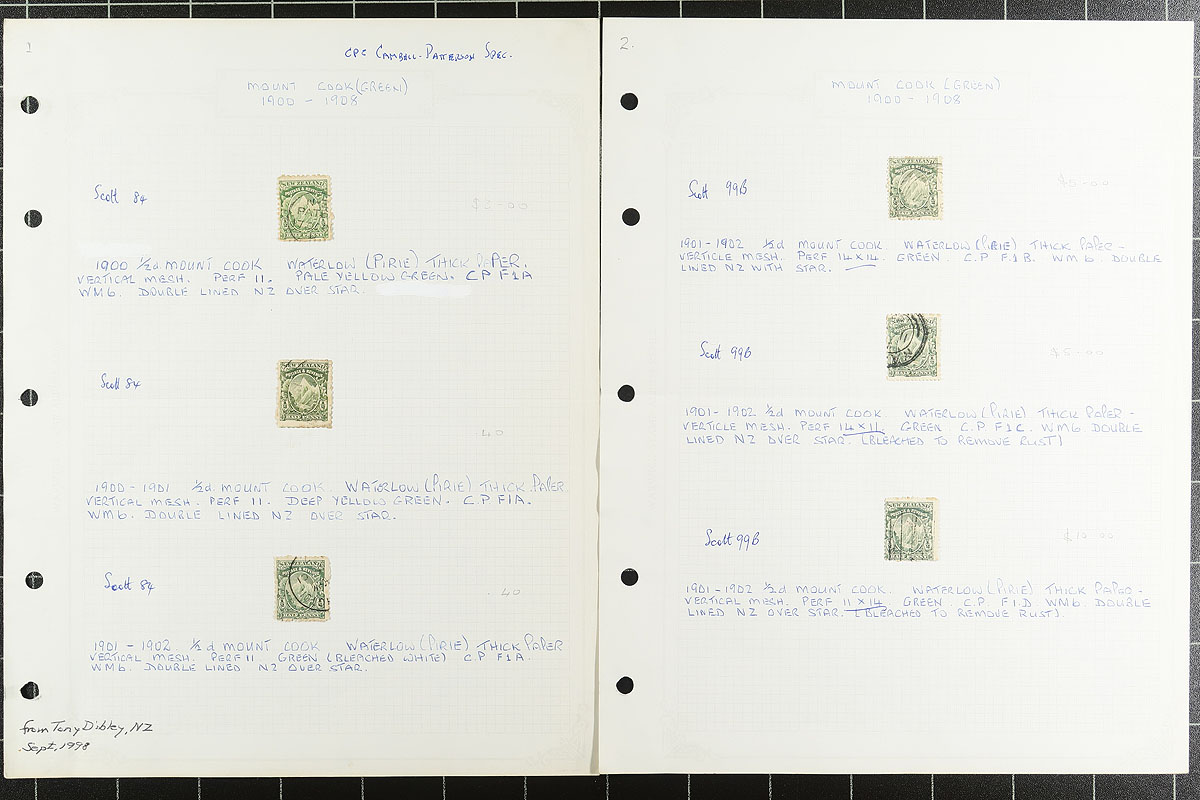 1
CPC CAMBELL-PATTERSON SPEC.
MOUNT COOK (GREEN)
1900 - 1908
Scott 84
$5-00
1900 ½d MOUNT COOK WATERLOW (PIRIE) THICK PAPER.
VERTICAL MESH. PERF 11. PALE YELLOW GREEN. C P F1A
WM6. DOUBLE LINED NZ OVER STAR.
Scott 84
.40
1900 - 1901 ½d MOUNT COOK. WATERLOW (PIRIE) THICK PAPER.
VERTICAL MESH. PERF 11. DEEP YELLOW GREEN. C.P F1A.
WM6. DOUBLE LINED NZ OVER STAR.
Scott 84
.40
1901 - 1902 ½d MOUNT COOK WATERLOW (PIRIE) THICK PAPER
VERTICAL MESH. PERF 11 GREEN (BLEACHED WHITE) C.P F1A.
WM6. DOUBLE LINED NZ OVER STAR.
from Tony Dibley, NZ
Sept, 1998
2.
MOUNT COOK (GREEN)
1900 - 1908
Scott 99B
$5-00
1901 - 1902 ½d MOUNT COOK WATERLOW (PIRIE) THICK PAPER -
VERTICLE MESH. PERF 14 X 14. GREEN. C.P F1B. WM6. DOUBLE
LINED NZ WITH STAR.
Scott 99B
$5-00
1901 - 1902 ½d MOUNT COOK. WATERLOW (PIRIE) THICK PAPER -
VERTICLE MESH. PERF 14 X 11. GREEN. C.P F1C. WM6. DOUBLE
LINED NZ OVER STAR. (BLEACHED TO REMOVE RUST)
Scott 99B
$10-00
1901 - 1902 ½d MOUNT COOK. WATERLOW (PIRIE) THICK PAPER -
VERTICAL MESH. PERF 11 X 14 GREEN. C.P. F1.D WM6. DOUBLE
LINED NZ OVER STAR. (BLEACHED TO REMOVE RUST).